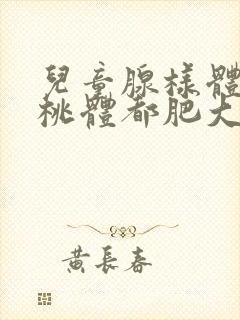 兒童腺樣體
桃體都肥大
黃長春